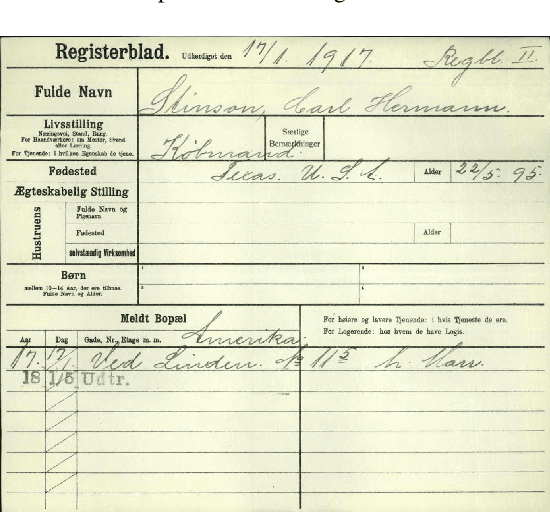 Registerblad. Udfærdiget den 17/1 1917. Regbl. II.
Fulde Navn Stinson, Carl Hermann.
Livsstilling
Næringsvei, Stand, Rang.
For Haandværkere: om Mester, Svend
eller Lærling.
For Tjenende: i hvilken Egenskab de tjene.
Købmand.
Særlige
Bemærkninger
Fødested Texas. U. S. A. Alder 22/5. 95.
Ægteskabelig Stilling
Hustruens
Fulde Navn og
Pigenavn
Fødested Alder
selvstændig Virksomhed
Børn
mellem 10—14 Aar, der ere tilhuse.
Fulde Navn og Alder.
1 3
2 4
Meldt Bopæl
For høiere og lavere Tjenende: i hvis Tjeneste de ere.
For Logerende: hos hvem de have Logis.
Aar Dag Gade, Nr., Etage m. m. Amerika.
17. 17/1. Ved Linden. No 11 5 h. Marr.
18 1/5 Udtr.